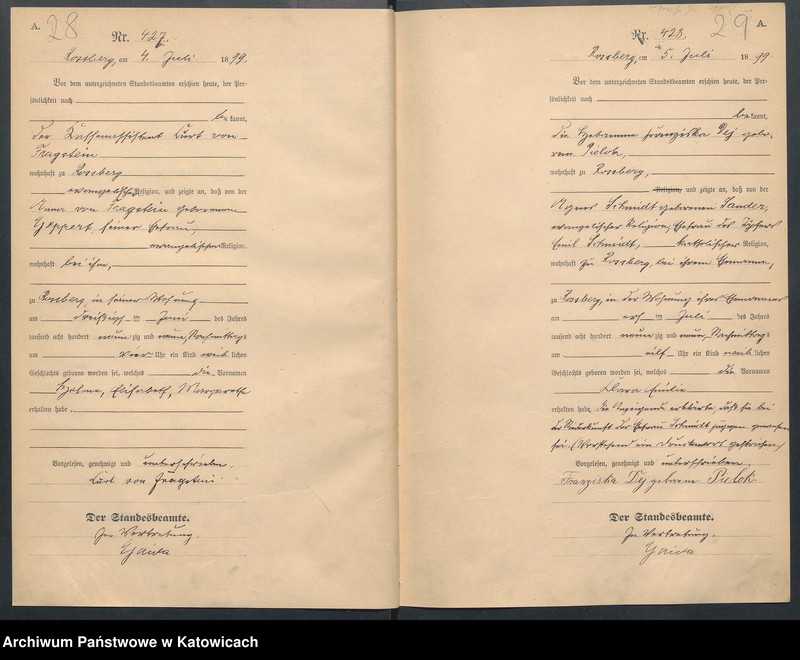 A.
28
Nr. 427.
Rossberg, am 4. Juli 1899.
Vor dem unterzeichneten Standesbeamten erschien heute, der Per-
sönlichkeit nach
bekannt,
der Kassenassistent Curt von
Fragstein
wohnhaft zu Rossberg
evangelischer Religion, und zeigte an, daß von der
Anna von Fragstein geborenen
Goppert, seiner Ehefrau,
evangelischer Religion,
wohnhaft bei ihm,
zu Rossberg, in seiner Wohnung
am dreißigsten Juni des Jahres
tausend acht hundert neunzig und neun, Nachmittags
um vier Uhr ein Kind weiblichen
Geschlechts geboren worden sei, welches die Vornamen
Helene, Elisabeth, Margarethe
erhalten habe.
Vorgelesen, genehmigt und unterschrieben.
Curt von Fragstein
Der Standesbeamte.
In Vertretung.
Gaida
29
A.
Nr. 428.
Rossberg, am 5. Juli 1899.
Vor dem unterzeichneten Standesbeamten erschien heute, der Per-
sönlichkeit nach
bekannt,
die Hebamme Franziska Dej gebo-
ren Pielok,
wohnhaft zu Rossberg,
Religion, und zeigte an, daß von der
Agnes Schmidt geborenen Sander,
evangelischer Religion, Ehefrau des Töpfers
Emil Schmidt, katholischer Religion,
wohnhaft zu Rossberg, bei ihrem Ehemanne,
zu Rossberg, in der Wohnung ihres Ehemannes
am ersten Juli des Jahres
tausend acht hundert neunzig und neun, Nachmittags
um elf Uhr ein Kind weiblichen
Geschlechts geboren worden sei, welches die Vornamen
Klara Emilie
erhalten habe. Die Anzeigende erklärte, daß sie bei
der Niederkunft der Ehefrau Schmidt zugegen gewesen
sei. (Vorstehend ein Druckwort gestrichen.)
Vorgelesen, genehmigt und unterschrieben.
Franzeska Dej geboren Pielok
Der Standesbeamte.
In Vertretung.
Gaida
Archiwum Państwowe w Katowicach